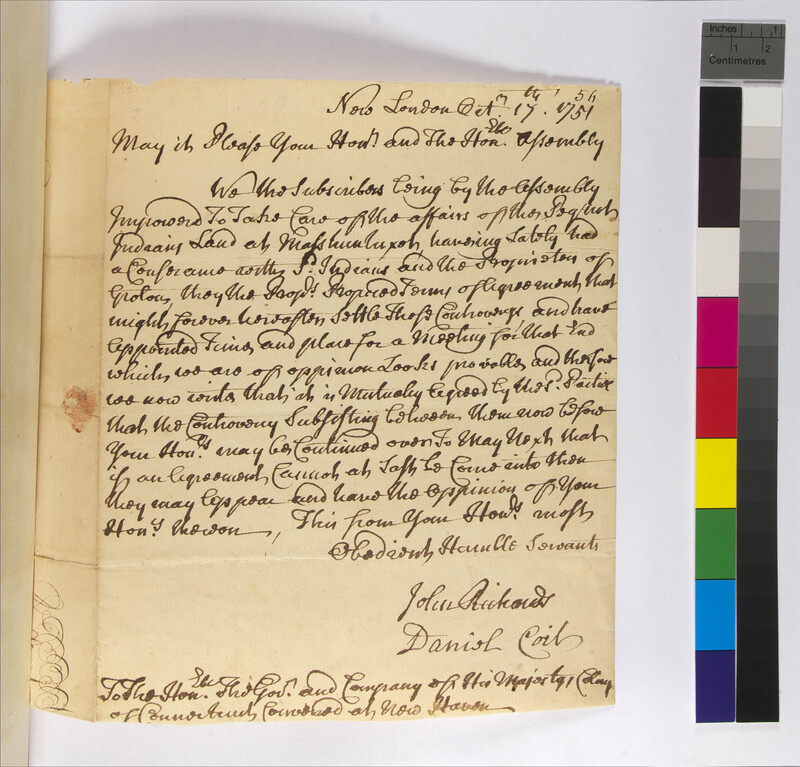 New London Oct. 17th. 1751
56
May it Please Your Honrs. and The Honble. Assembly
We the Subscribers being by the Assembly
Impowerd To Take Care of the affairs of the Pequot
Indians Land at Mashuntuxet, haveing Lately had
a Conferance with sd. Indians and the Proprietors of
Groton, they the Proprs. Proposed Terms of Agreement, that
might forever hereafter Settle Those Controversys and have
Appointed Time and place for a Meeting for that End
which we are of oppinion Looks provable, and therfore
we now write that it is Mutualy Agreed by the sd. Parties
that the Controversy Subsisting between them now before
Your Honrs. may be Continued over To May Next that
if an Agreement Cannot at Last be Come into then
they may Appear and have the Oppinion of Your
Honrs. thereon, This from Your Honrs. most
Obedient Humble Servants
John Richards
Daniel Coit
To The Honble. The Govr. and Company of His Majestys Colony
of Connecticut Convened at New Haven
Inches 1
1 2
Centimetres